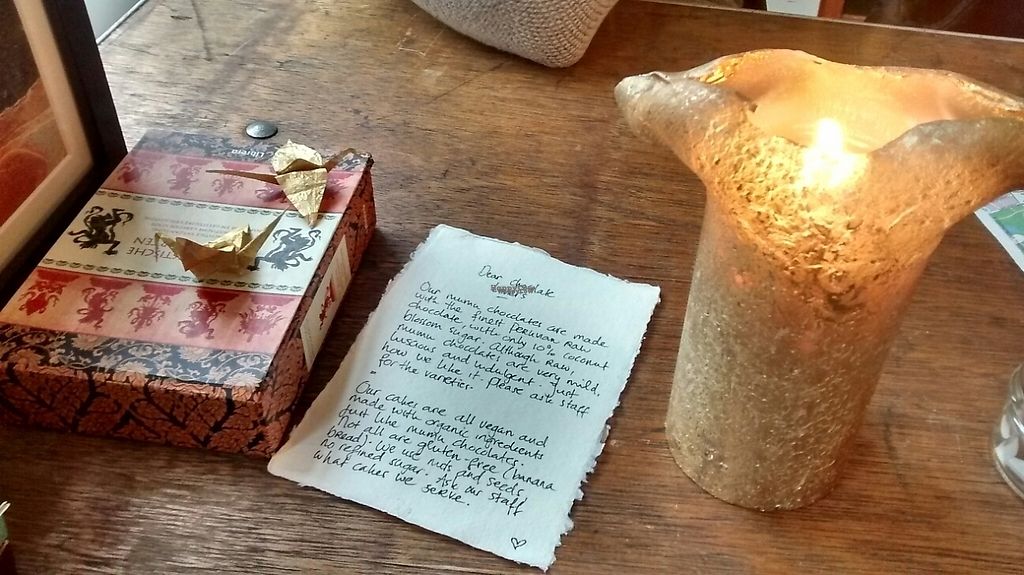 Librero
TISCHE
Dear
Our mumu chocolates are made
with the finest Peruvian Raw
chocolate, with only 10% coconut
blossom sugar. Although Raw,
mumu chocolates are very mild,
luscious and indulgent. Just
how we like it. Please ask staff
for the varieties.
Our cakes are all vegan and
made with organic ingredients
Just like mumu chocolates.
Not all are gluten-free (banana
bread). We use nuts and seeds,
no refined sugar. Ask our staff
what cakes we serve.